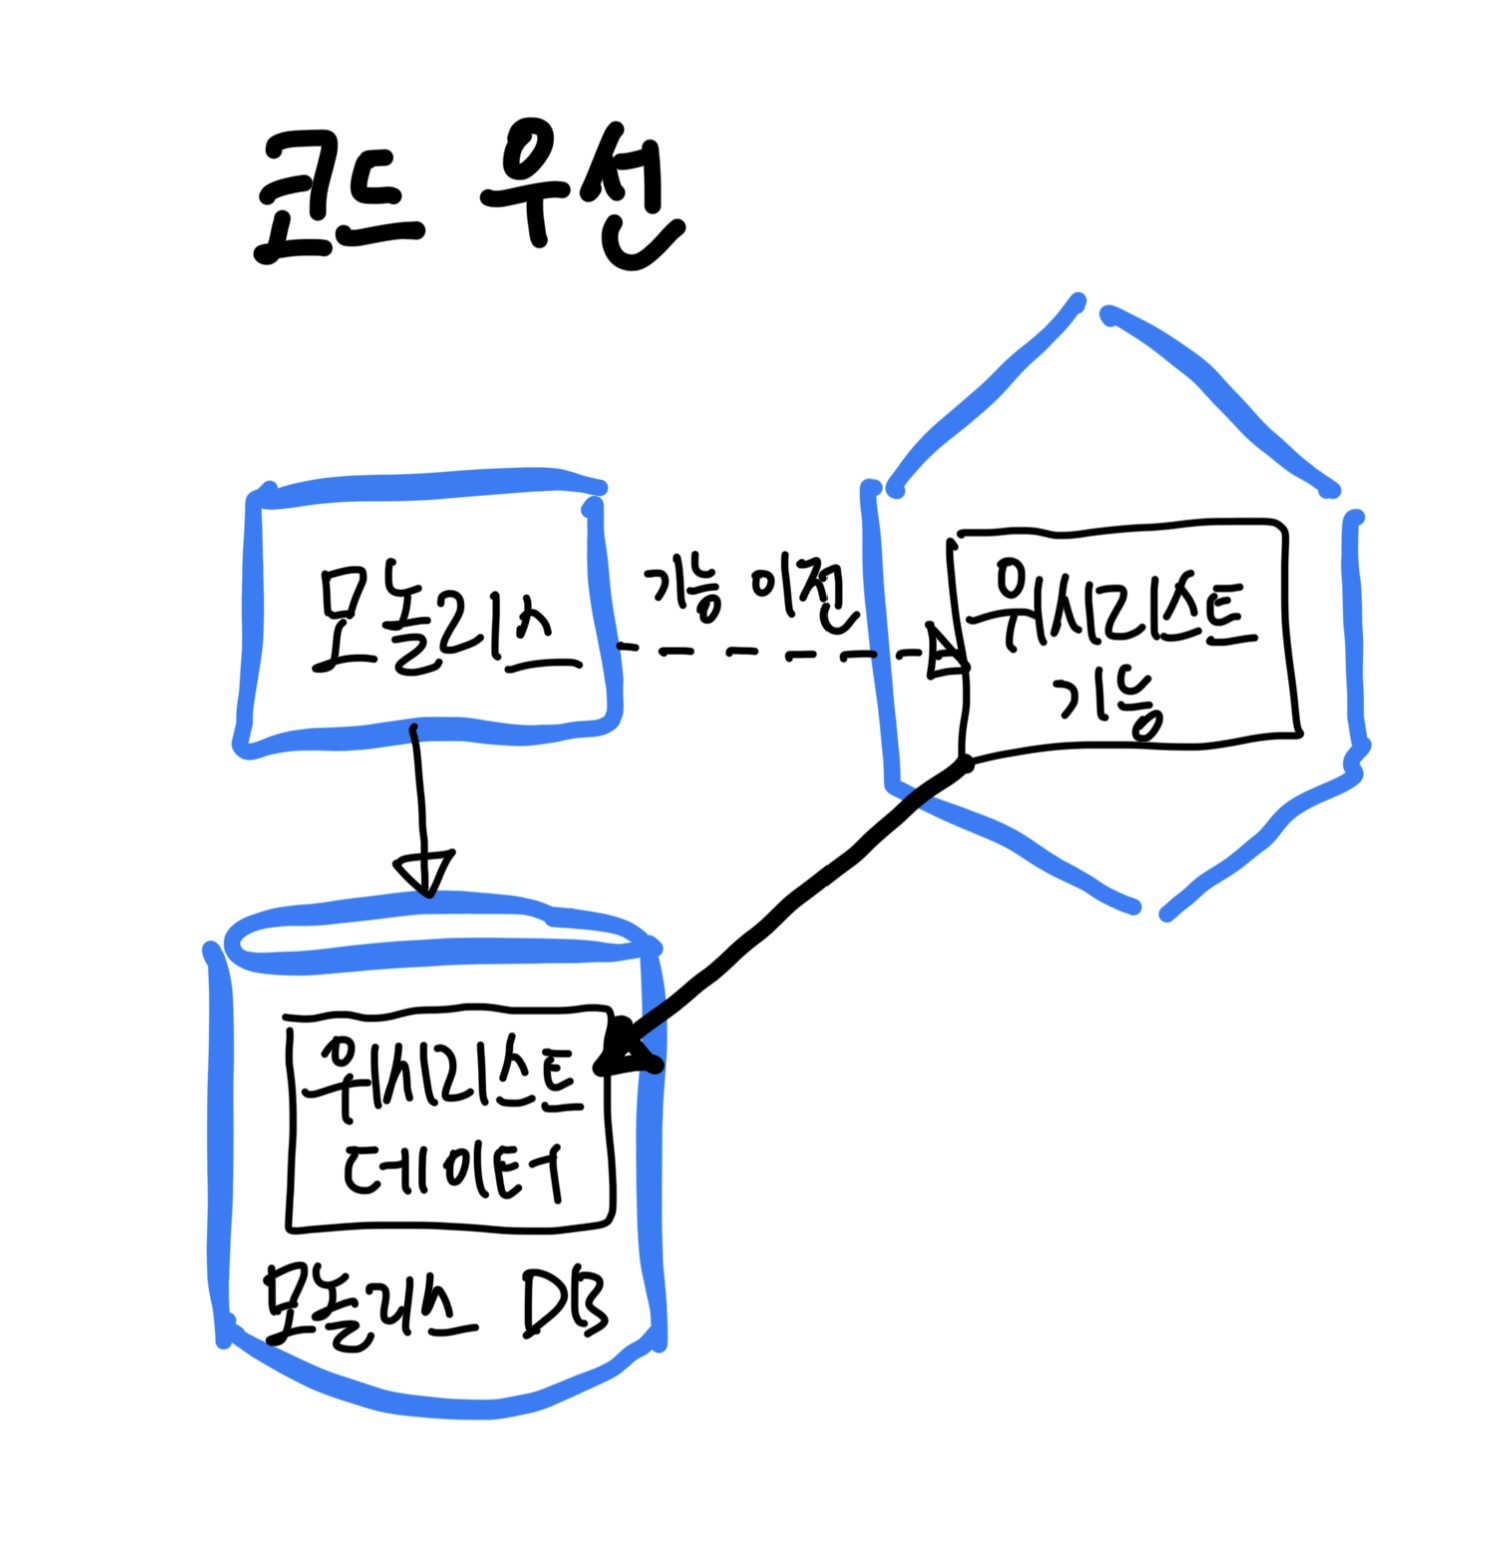 코드 우선
모놀리스
기능 이전
위시리스트
기능
위시리스트
데이터
모놀리스 DB